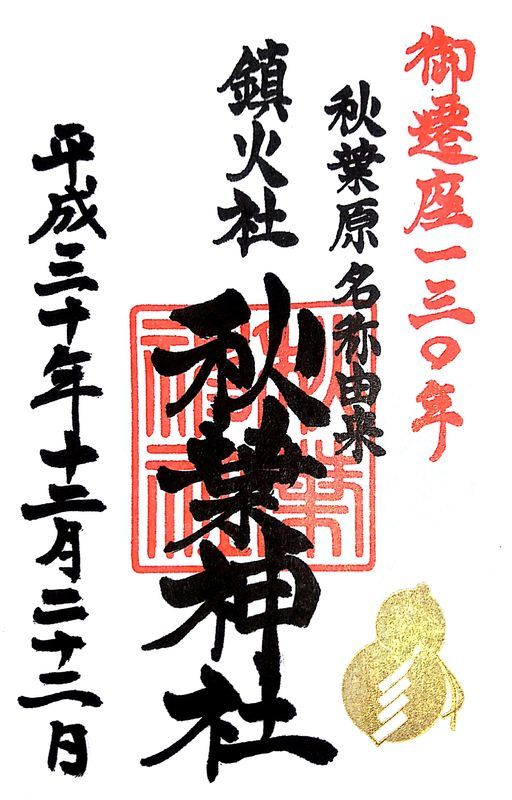 御遷座一三〇年
秋葉原名称由来
鎮火社
秋葉神社
秋葉神社
平成三十年十二月二十二日